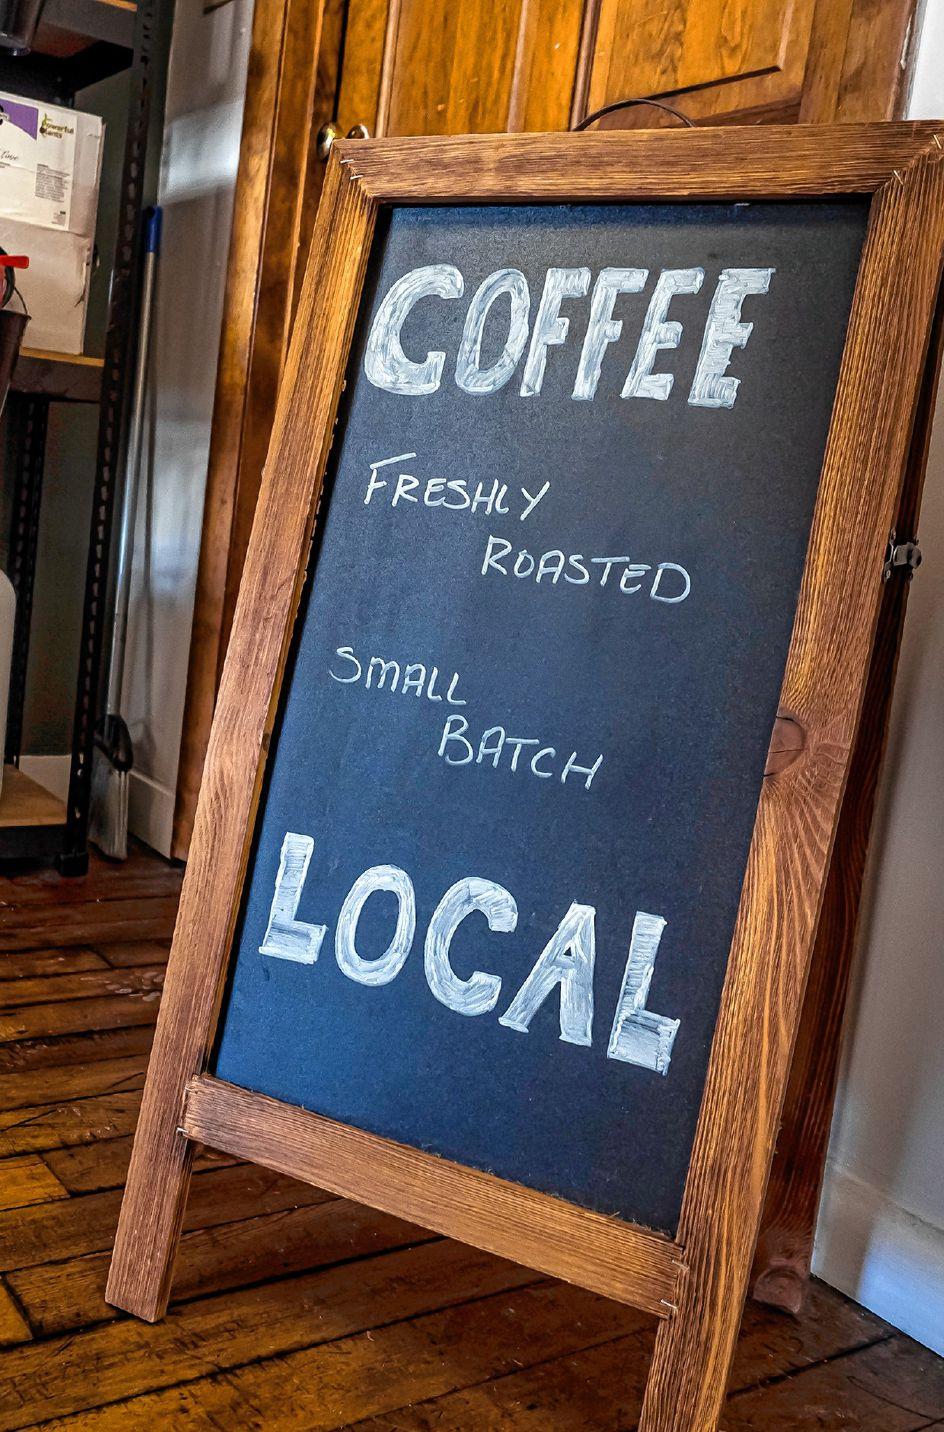 COFFEE
FRESHLY
ROASTED
SMALL
BATCH
LOCAL